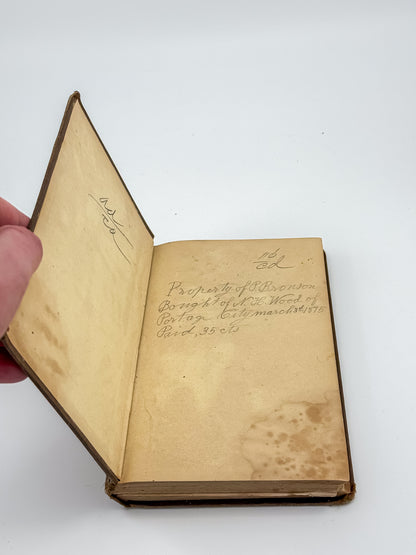 Property of P. Bronson
Bought of N. H. Wood of
Portage City march 3d 1875
Paid, 35 cts